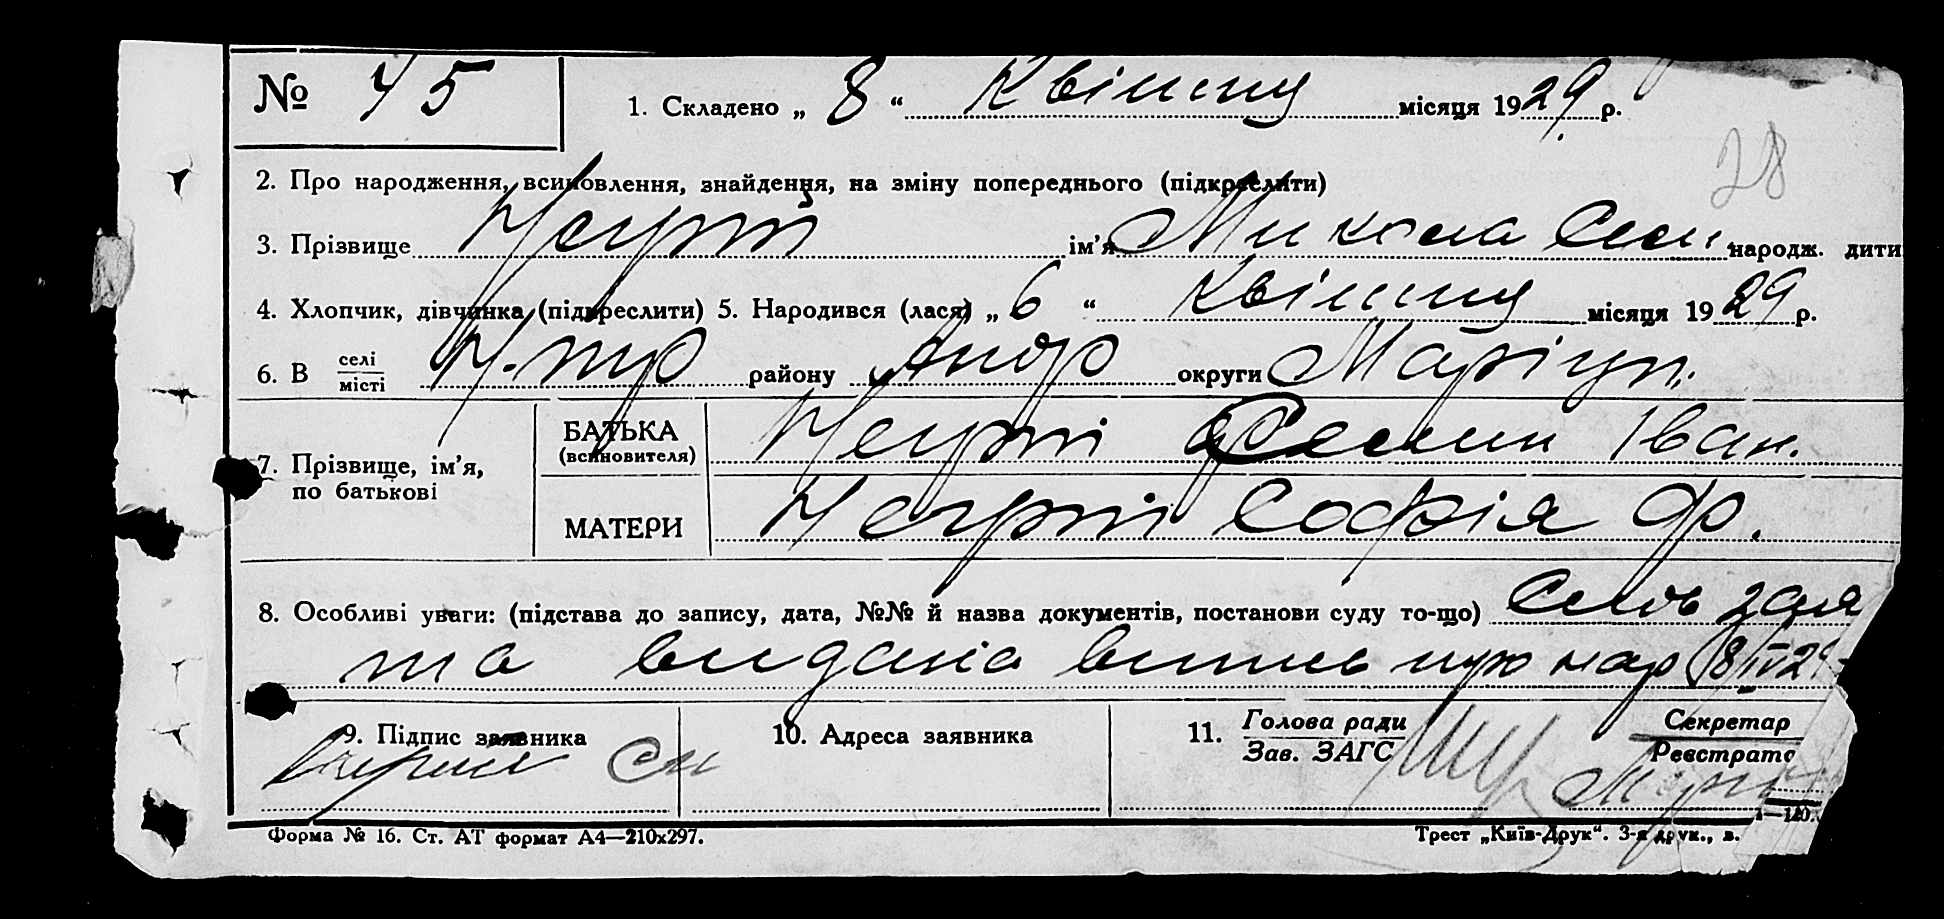 № 45
1. Складено „ 8 “ Квітня місяця 1929 р.
28
2. Про народження, всиновлення, знайдення, на зміну попереднього (підкреслити)
3. Прізвище ім’я Микола Сем. народж. дити
4. Хлопчик, дівчинка (підкреслити) 5. Народився (лася) „ 6 “ Квітня місяця 1929 р.
6. В селі місті району округи Маріуп.
7. Прізвище, ім’я, по батькові
БАТЬКА (всиновителя) Семен Іван.
МАТЕРИ Софія Ф.
8. Особливі уваги: (підстава до запису, дата, №№ й назва документів, постанови суду то-що)
та видана випись про нар 8/IV 29
9. Підпис заявника
10. Адреса заявника
11. Голова ради Зав. ЗАГС
Секретар Реєстрато
Форма № 16. Ст. АТ формат А4—210х297.
Трест „Київ-Друк“. 3-я друк., в.